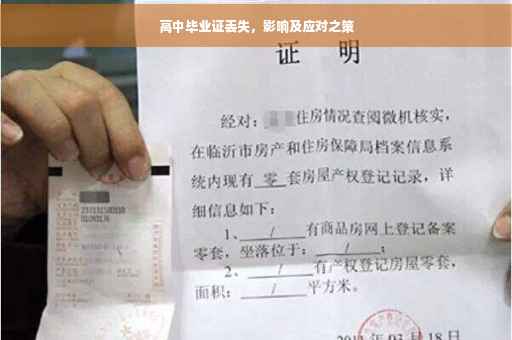 高中毕业证丢失，影响及应对之策
证 明
经对：住房情况查阅微机核实，
在临沂市房产和住房保障局档案信息系
统内现有 零 套房屋产权登记记录，详
细信息如下：
1、 / 有商品房网上登记备案
零套，坐落位于： / ；
2、 / 有产权登记房屋零套，
面积： / 平方米。
03月18日